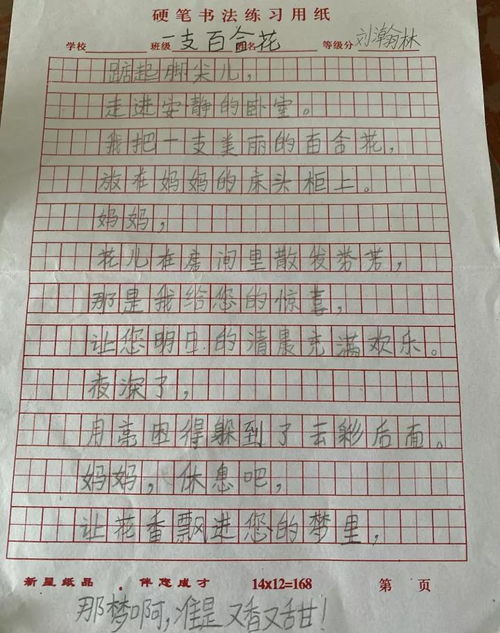 硬笔书法练习用纸
学校 班级 姓名 等级分
一支百合花 刘瀚林
踮起脚尖儿，
走进安静的卧室。
我把一支美丽的百合花，
放在妈妈的床头柜上。
妈妈，
花儿在房间里散发芬芳，
那是我给您的惊喜，
让您明日的清晨充满欢乐。
夜深了，
月亮困得躲到了云彩后面。
妈妈，休息吧，
让花香飘进您的梦里，
新星纸品 · 伴您成才 14×12=168 第 页
那梦啊，准是又香又甜！